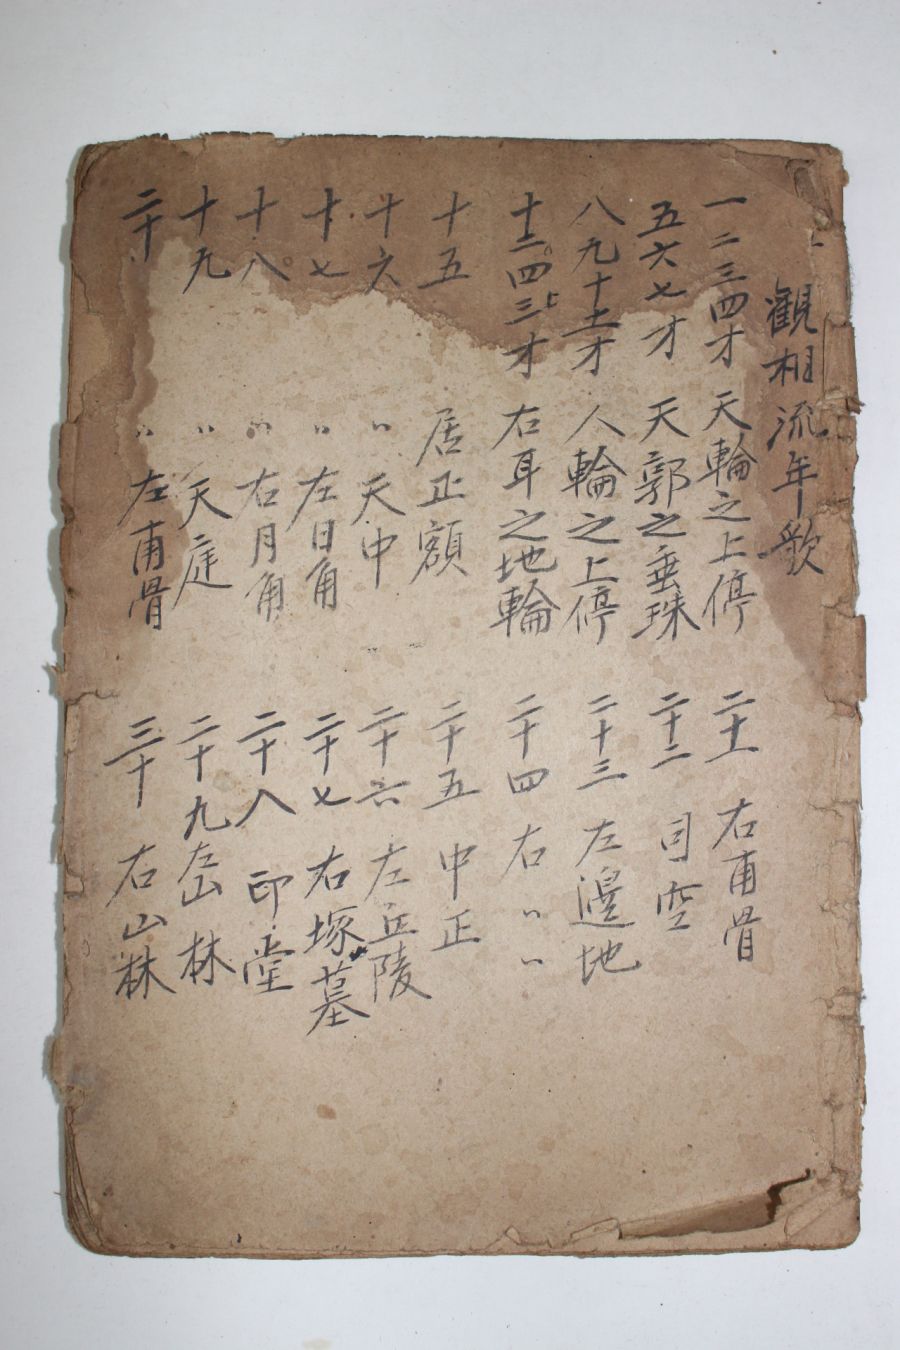 觀相流年歌
一二三四才 天輪之上停
五六七才 天郭之垂珠
八九十十一才 人輪之上停
十二四三才 右耳之地輪
十五 居正額
十六 〃 天中
十七 〃 左日角
十八 〃 右月角
十九 〃 天庭
二十 〃 左甫骨
二十一 右甫骨
二十二 司空
二十三 左邊地
二十四 右〃〃
二十五 中正
二十六 左丘陵
二十七 右塚墓
二十八 印堂
二十九 左山林
三十 右山林